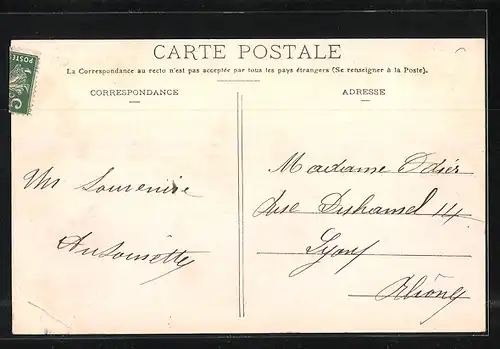 CARTE POSTALE
La Correspondance au recto n'est pas acceptée par tous les pays étrangers (Se renseigner à la Poste).
CORRESPONDANCE
ADRESSE
Un Souvenire
Antoinette
Madame Odier
Rue Duhamel 14
Lyon
Rhône